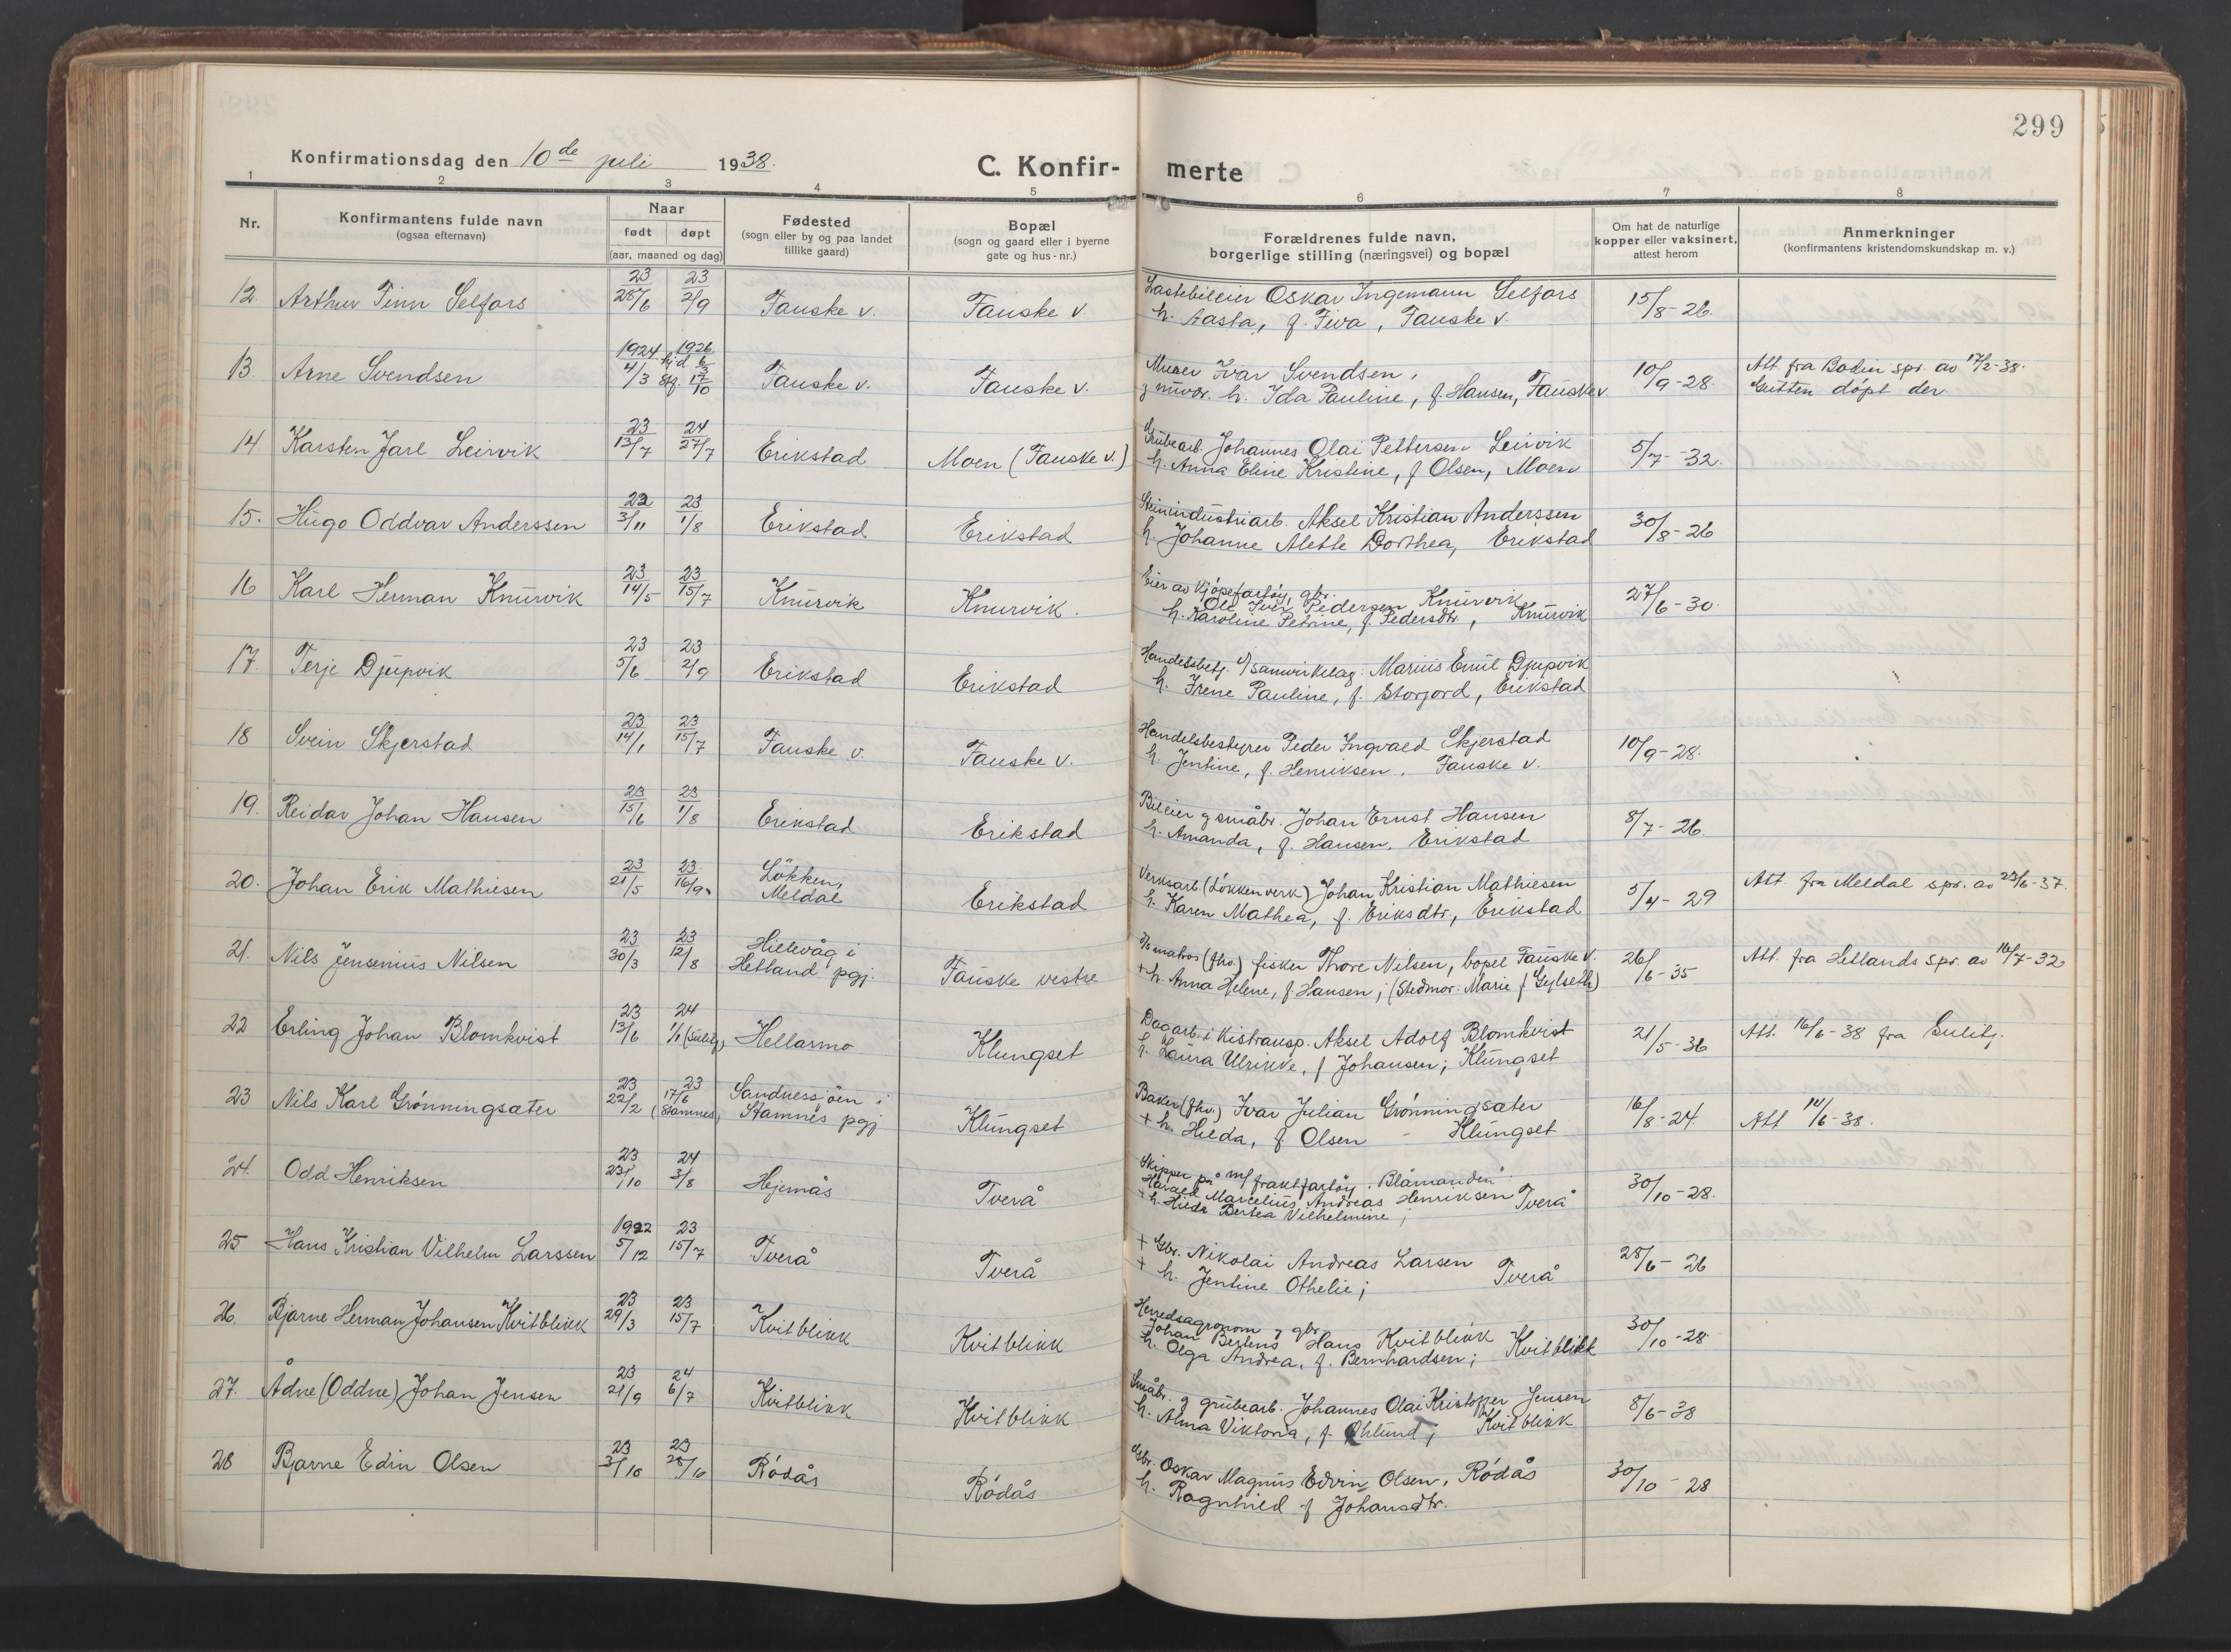 299
Konfirmationsdag den 10de juli 1938.
C. Konfir- merte
1 2 3 4 5 6 7 8
Nr.
Konfirmantens fulde navn
(ogsaa efternavn)
Naar
født døpt
(aar, maaned og dag)
Fødested
(sogn eller by og paa landet
tillike gaard)
Bopæl
(sogn og gaard eller i byerne
gate og hus-nr.)
Forældrenes fulde navn,
borgerlige stilling (næringsvei) og bopæl
Om hat de naturlige
kopper eller vaksinert,
attest herom
Anmerkninger
(konfirmantens kristendomskundskap m. v.)
23 23
12 Arthur Finn Selfors 28/6 2/9 Fauske v. Fauske v. Lastebileier Oskar Ingemann Selfors 15/8-26.
h. Aasta, f. Fiva, Fauske v.
1924 1926
13. Arne Svendsen 4/3 hj.d. 6/3 Fauske v. Fauske v. Murer Ivar Svendsen, 10/9-28. Att. fra Bodin spr. av 17/2-38.
stf. 17/10 h. Ida Pauline, f. Hansen, Fauske v. Gutten døpt der
23 24
14. Karsten Jarl Leirvik 13/7 27/7 Erikstad Moen (Fauske v.) Grubearb. Johannes Olai Pettersen Leirvik 5/7-32.
h. Anna Eline Kristine, f Olsen, Moen
22 23
15. Hugo Oddvar Anderssen 3/11 1/8 Erikstad Erikstad Steinindustriarb. Aksel Kristian Anderssen 30/8-26
h. Johanne Alette Dorthea, Erikstad
23 23
16 Karl Herman Knurvik 14/5 15/7 Knurvik Knurvik. Eier av kjøpefartøy, gbr. 27/6-30.
Ole Iver Pedersen Knurvik
h. Karoline Petrine, f. Pedersdtr., Knurvik
23 23
17. Terje Djupvik 5/6 2/9 Erikstad Erikstad Handelsbetj. i/samvirkelag: Marius Emil Djupvik
h. Irene Pauline, f. Storjord, Erikstad
23 23
18 Svein Skjerstad 14/1 15/7 Fauske v. Fauske v. Handelsbestyrer Peder Ingvald Skjerstad 10/9-28.
h. Jentine, f. Henriksen, Fauske v.
23 23
19. Reidar Johan Hansen 15/6 1/8 Erikstad Erikstad Bileier g småbr. Johan Ernst Hansen 8/7-26.
h. Amanda, f. Hansen, Erikstad
23 23
20. Johan Erik Mathiesen 21/5 16/9 Løkken, Meldal Erikstad Verksarb. (Løkken verk) Johan Kristian Mathiesen 5/4-29 Att. fra Meldal spr. av 23/6-37.
h. Karen Mathea, f. Eriksdtr., Erikstad
23 23
21. Nils Jensenius Nilsen 30/3 12/8 Hillevåg i Hetland pgj. Fauske vestre D/S matros (fhv.) fisker Thore Nilsen, bopel Fauske v. 26/6-35 Att. fra Hetlands spr. av 16/7-32
+ h. Anna Helene, f. Hansen; (Stedmor: Marie f Gylseth)
23 24
22 Erling Johan Blomkvist 13/6 1/1 (Sulitj.) Hellarmo Klungset Dagarb. i Kistransp. Aksel Adolf Blomkvist 21/5-36 Att. 16/6-38 fra Sulitj.
h. Laura Ulrikke, f Johansen; Klungset
23 23
23 Nils Karl Grønningsæter 22/2 17/6 (Stamnes) Sandnessjøen i Stamnes pgj Klungset Baker (fhv.) Ivar Julian Grønningsæter 16/8-24. Att 14/6-38.
+ h. Hilda, f. Olsen - Klungset
23 24
24. Odd Henriksen 23/10 3/8 Hjemås Tverå Skipper på m/ fraktfartøy "Blåmanden" 30/10-28.
Harald Marcelius Andreas Henriksen Tverå
+ h. Hilda Bertea Vilhelmine;
1922 23
25 Hans Kristian Vilhelm Larssen 5/12 15/7 Tverå Tverå + Gbr. Nikolai Andreas Larsen 28/6-26
+ h. Jentine Othelie; Tverå
23 23
26. Bjarne Herman Johansen Kvitblikk 29/3 15/7 Kvitblikk Kvitblikk Herredsagronom g gbr. 30/10-28.
Johan Bertens Hans Kvitblikk Kvitblikk
h. Olga Andrea, f. Bernhardsen;
23 24
27. Ådne (Oddne) Johan Jensen 21/9 6/7 Kvitblikk Kvitblikk Småbr. g grubearb. Johannes Olai Kristoffer Jensen 8/6-38
h. Alma Viktoria, f. Øhlund; Kvitblikk
23 23
28 Bjarne Edin Olsen 3/10 28/10 Rødås Rødås Gbr. Oskar Magnus Edvin Olsen, Rødås 30/10-28
h. Ragnhild f Johansdtr.